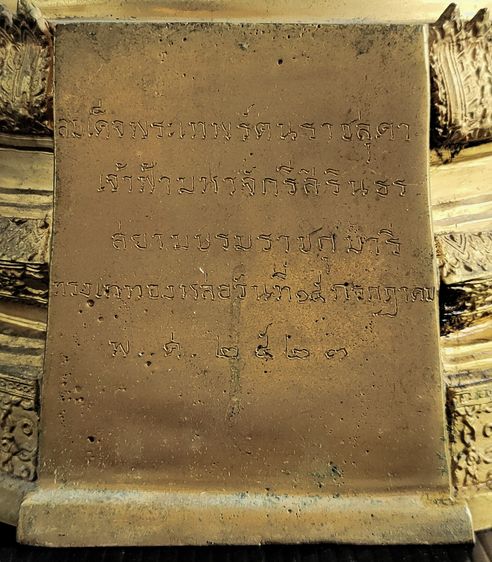 สมเด็จพระเทพรัตนราชสุดา
เจ้าฟ้ามหาจักรีสิรินธร
สยามบรมราชกุมารี
ทรงเททองหล่อวันที่ ๑๕ กรกฎาคม
พ.ศ. ๒๕๒๓